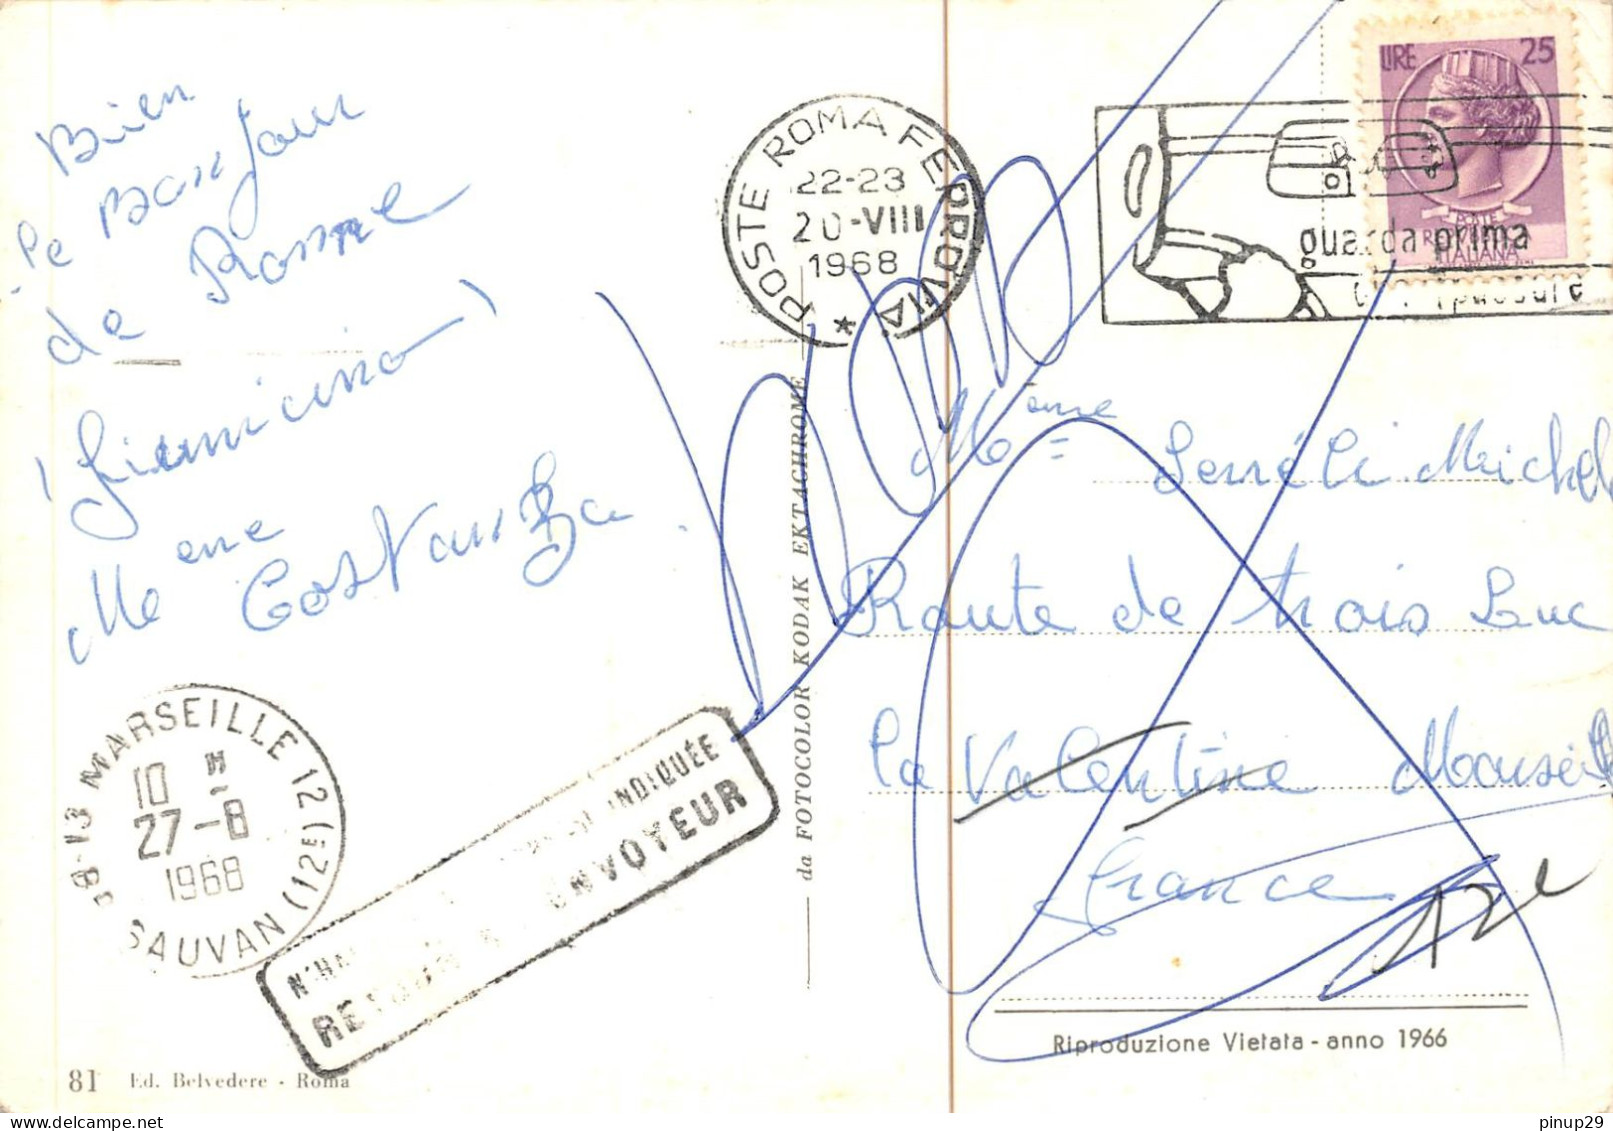 Bien
le Bonjour
de Rome
(fiumicino)
Meme Costanza
POSTE ROMA FERROVIA *
22-23
20-VIII
1968
LIRE 25
POSTE
REPUBBLICA
ITALIANA
guarda prima
Meme Michel
Route de trois Luc
la Valentine Marseille
France
da FOTOCOLOR KODAK EKTACHROME
13 MARSEILLE 12
10 H
27-8
1968
SAUVAN (12E)
INDIQUÉE
RETOUR A ENVOYEUR
Riproduzione Vietata - anno 1966
81 Ed. Belvedere - Roma
pinup29